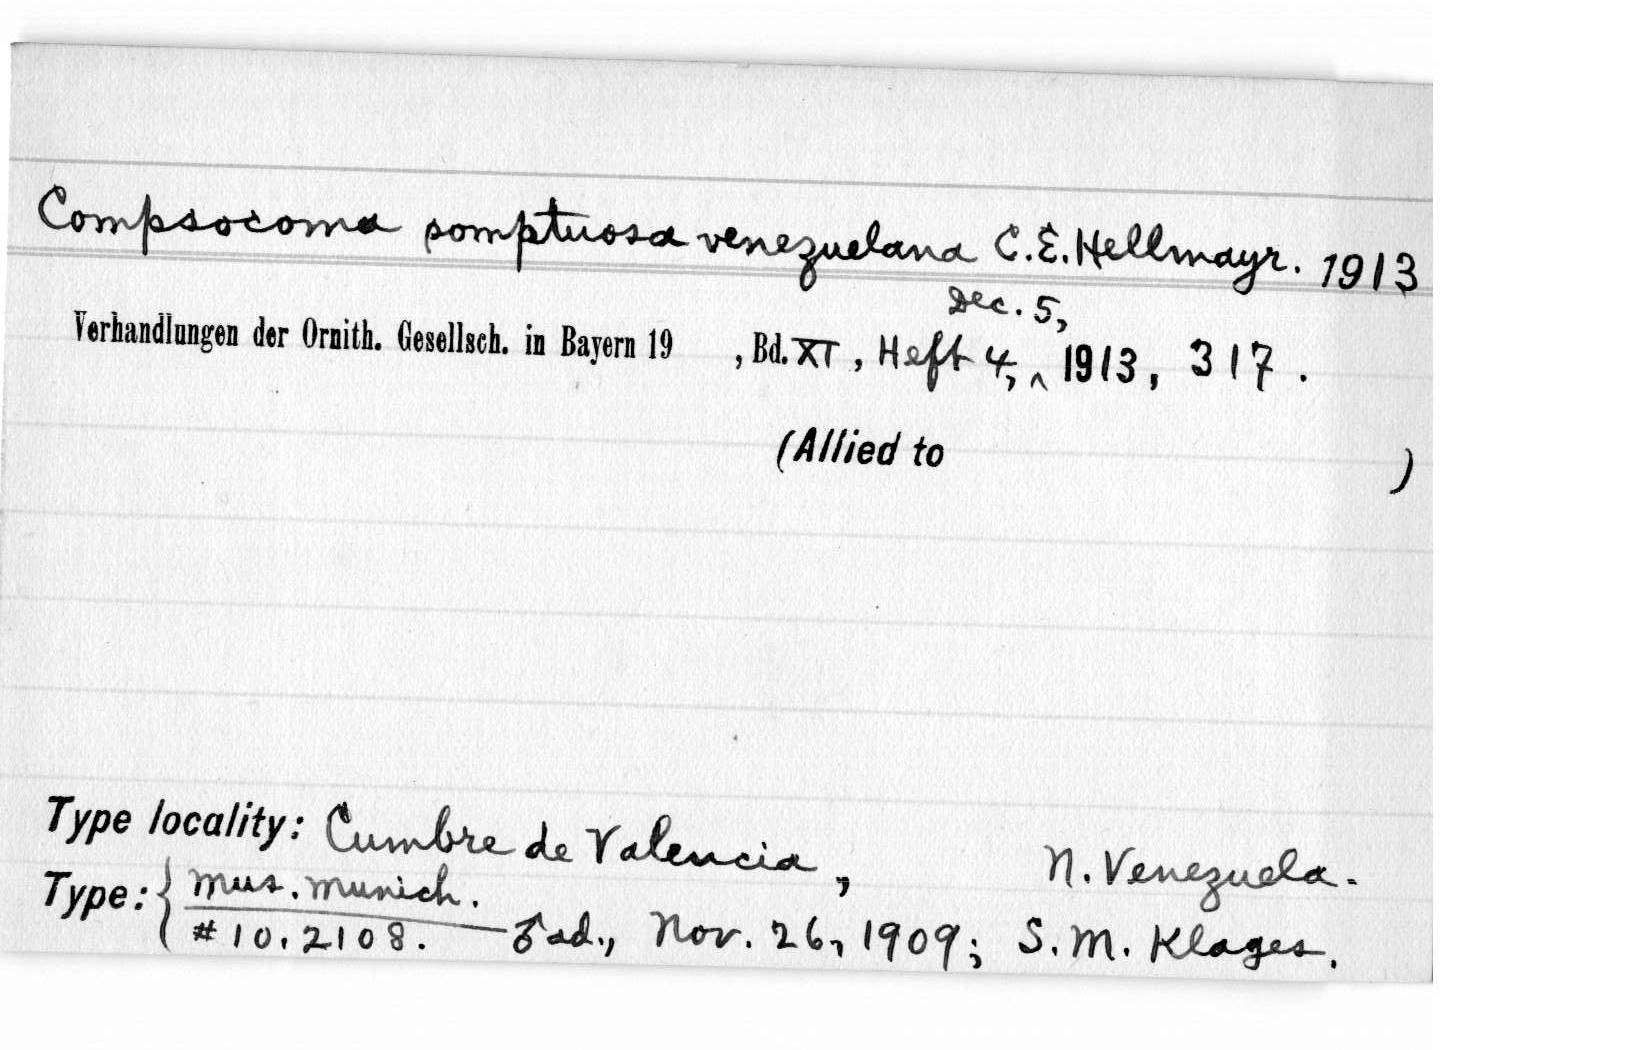 Compsocoma somptuosa venezuelana C.E. Hellmayr. 1913
Dec. 5,
Verhandlungen der Ornith. Gesellsch. in Bayern 19 , Bd. XI, Heft 4, ^ 1913, 317.
(Allied to )
Type locality: Cumbre de Valencia, N. Venezuela.
Type: { Mus. Munich.
#10.2108. — ♂ ad., Nov. 26, 1909; S. M. Klages.